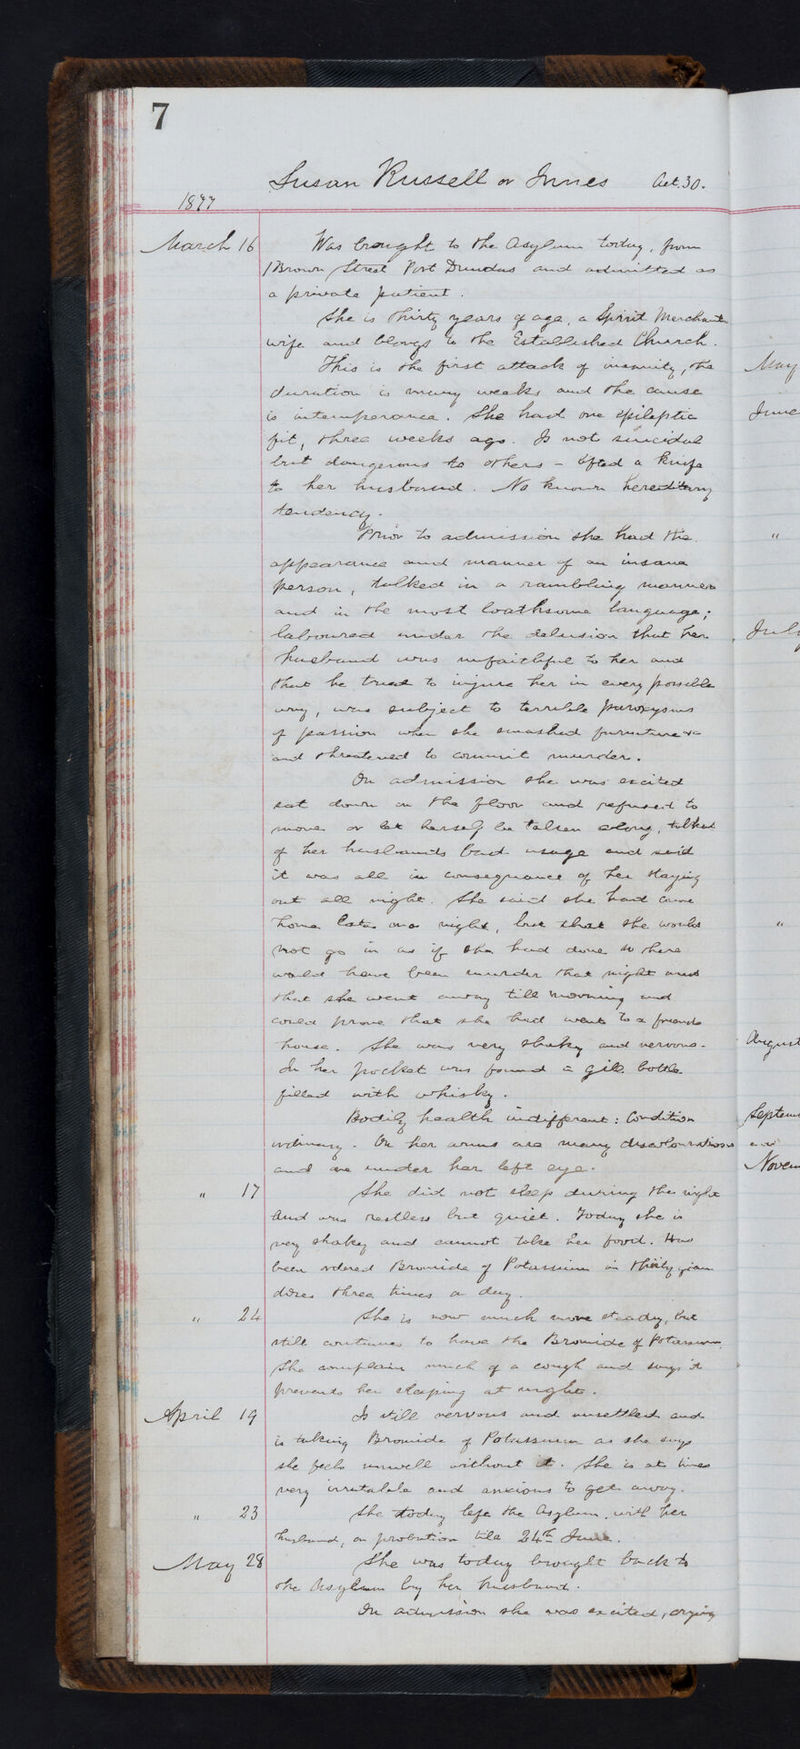 7
Susan Russell or Innes Aet. 30.
1877
March 16 Was brought to the Asylum today, from
1 Brown Street Port Dundas and admitted as
a private patient.
She is thirty years of age, a Spirit Merchants
wife and belongs to the Established Church.
This is the first attack of insanity, the
duration is many weeks and the cause
is intemperance. She had one epileptic
fit, three weeks ago. Is not suicidal
but dangerous to others - lifted a knife
to her husband. No known hereditary
tendency.
Prior to admission she had the
appearance and manner of an insane
person, talked in a rambling manner
and in the most loathsome language;
laboured under the delusion that her
husband was unfaithful to her and
that he tried to injure her in every possible
way, was subject to terrible paroxysms
of passion when she smashed furniture &c
and threatened to commit murder.
On admission she was excited
sat down on the floor and refused to
move or let herself be taken along, talked
of her husbands bad usage and said
it was all in consequence of her staying
out all night. She said she had come
home late one night, but that she would
not go in as if she had done so there
would have been murder that night and
that she went away till morning and
could prove that she had went to a friends
house. She was very shaky and nervous.
In her pocket was found a gill bottle
filled with whisky.
Bodily health indifferent: Condition
ordinary. On her arms are many discolourations
and one under her left eye.
" 17 She did not sleep during the night
and was restless but quiet. Today she is
very shaky and cannot take her food. Has
been ordered Bromide of Potassium in thirty grain
doses three times a day.
" 24 She is now much more steady, but
still continues to have the Bromide of Potassium.
She complains much of a cough and says it
prevents her sleeping at nights.
April 19 Is still nervous and unsettled and
is taking Bromide of Potassium as she says
she feels unwell without it. She is at times
very irritable and anxious to get away.
" 23 She today left the Asylum, with her
husband, on probation till 24th June.
May 28 She was today brought back to
the Asylum by her husband.
On admission she was excited, crying
May
June
"
July
"
August
Septem
and
Novem